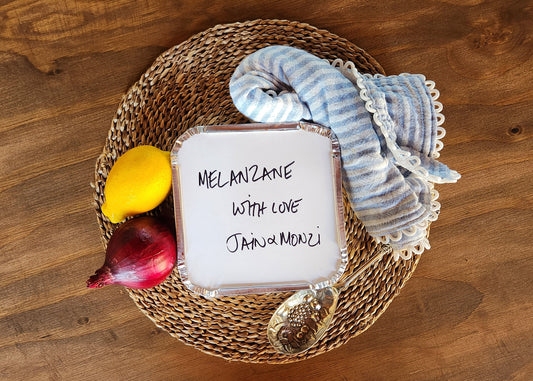 MELANZANE
WITH LOVE
JAIN & MONZI